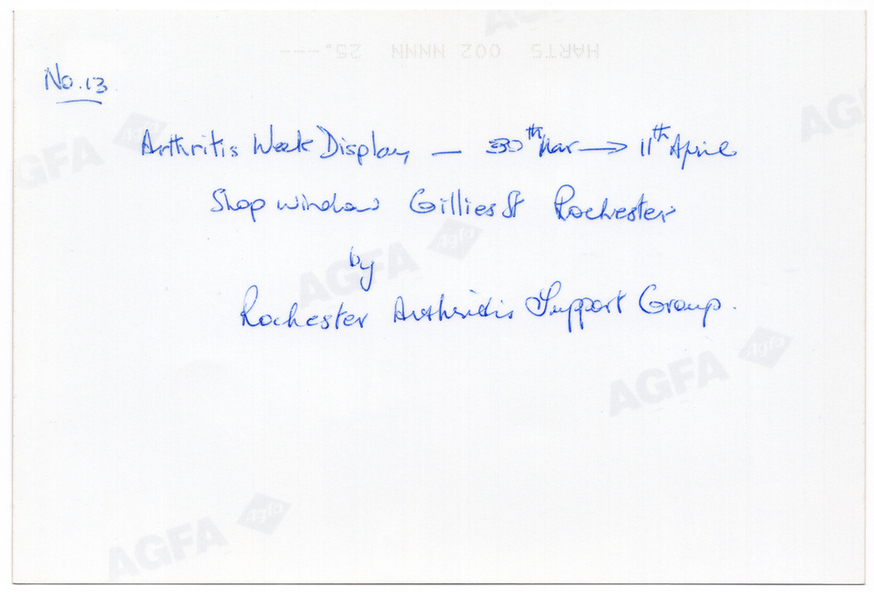 HARTS 002 NNNN 25.---
No. 13
Arthritis Week Display — 30th Mar → 11th April
Shop window Gillies St Rochester
by
Rochester Arthritis Support Group.
AGFA Agfa
AGFA
AGFA Agfa
AGFA Agfa
AGFA Agfa